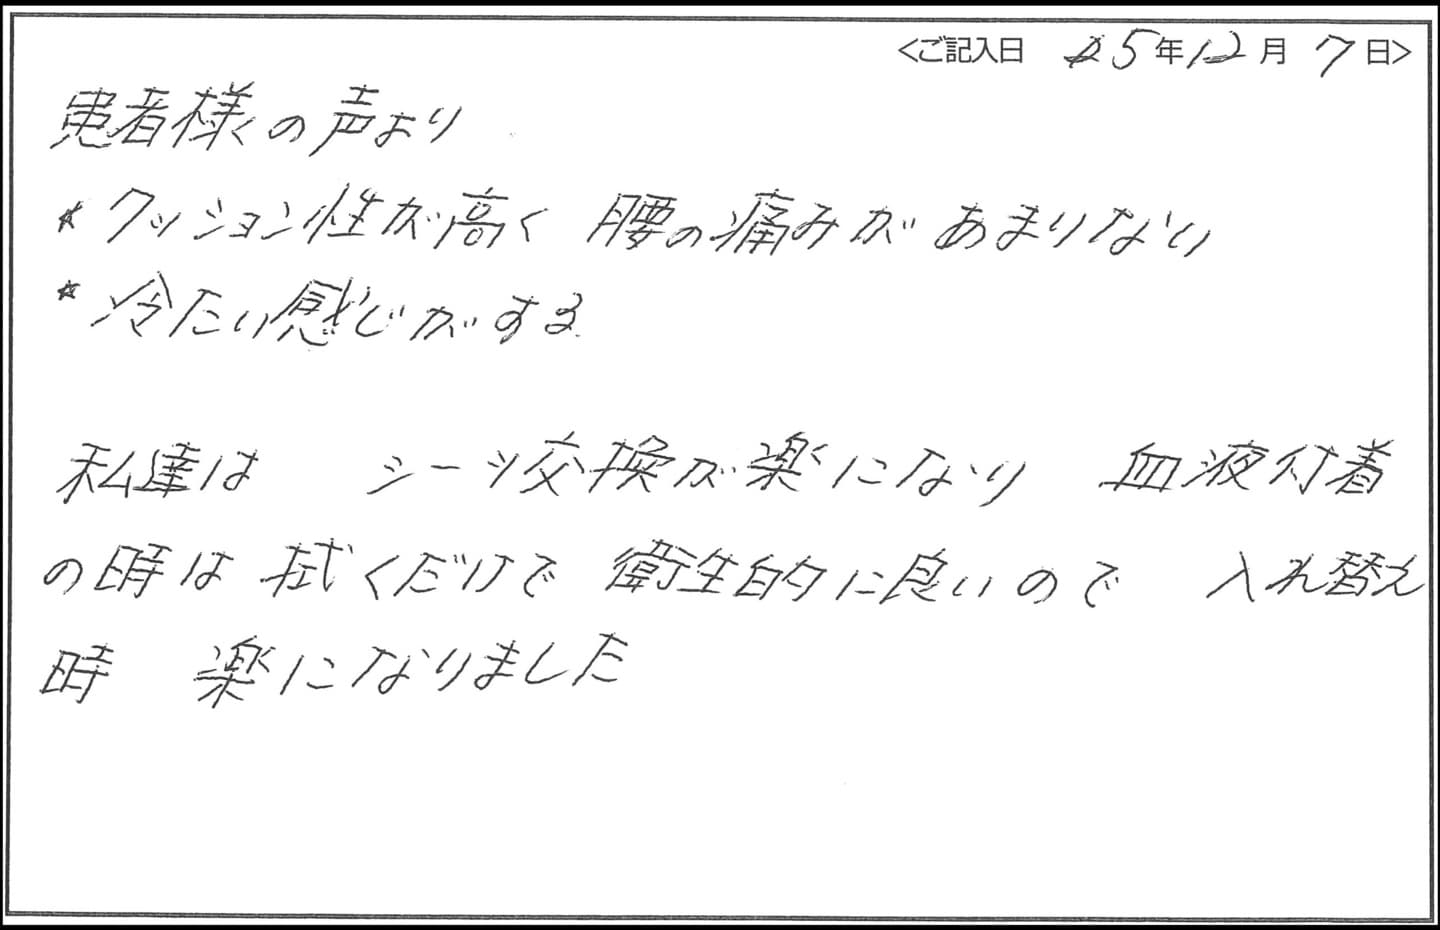 <ご記入日 25年12月7日>
患者様の声より
* クッション性が高く 腰の痛みがあまりない
* 冷たい感じがする
私達は シーツ交換が楽になり 血液付着
の時は 拭くだけで 衛生的に良いので 入れ替え
時 楽になりました